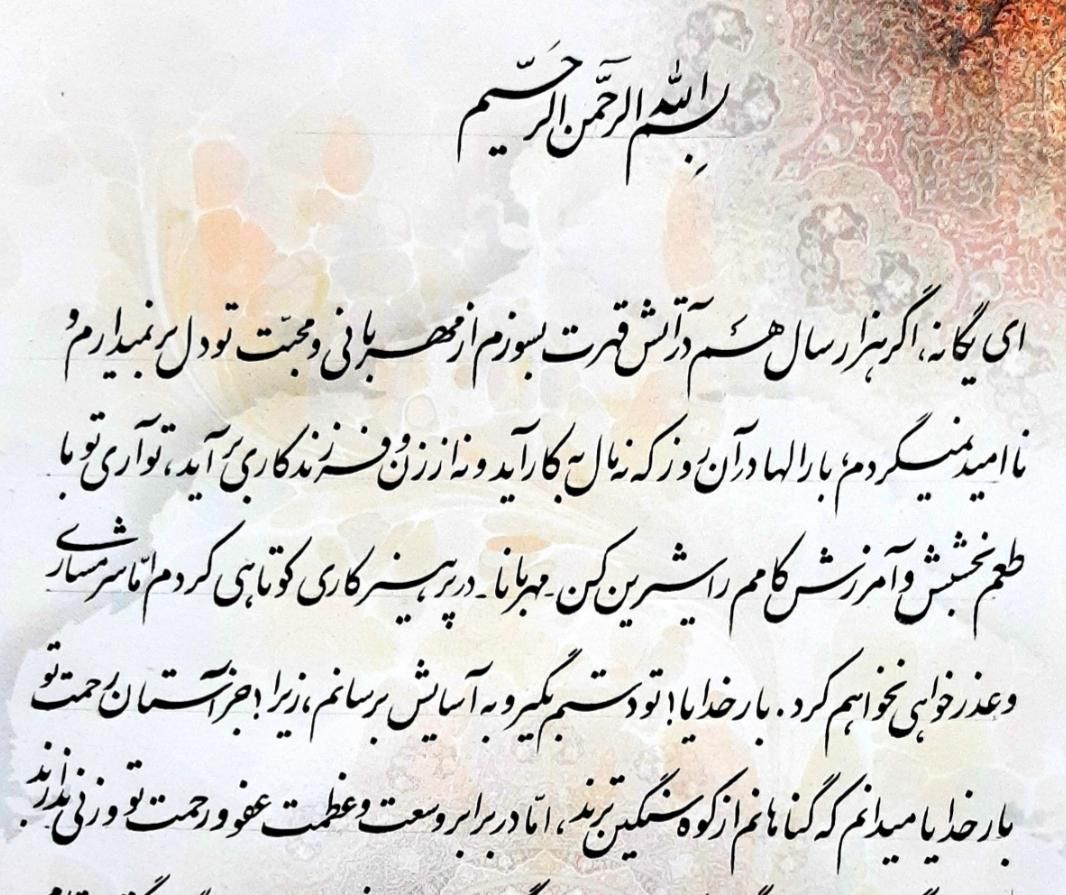 بسم الله الرحمن الرحیم
ای یگانه، اگر هزار سال هم در آتش قهرت بسوزم از مهربانی و محبّت تو دل بر نمیدارم و
ناامید نمیگردم، بارالها در آن روز که نه مال به کار آید و نه از زن و فرزند کاری برآید، تو آری تو با
طعم بخشش و آمرزش کامم را شیرین کن. مهربانا. در پرهیزکاری کوتاهی کردم امّا شرمساری
و عذرخواهی نخواهم کرد. بار خدایا! تو دستم بگیر و به آسایش برسانم، زیرا! جز آستان رحمت تو
بار خدایا میدانم که گناهانم از کوه سنگین ترند، امّا در برابر وسعت و عظمت عفو و رحمت تو وزنی ندارند